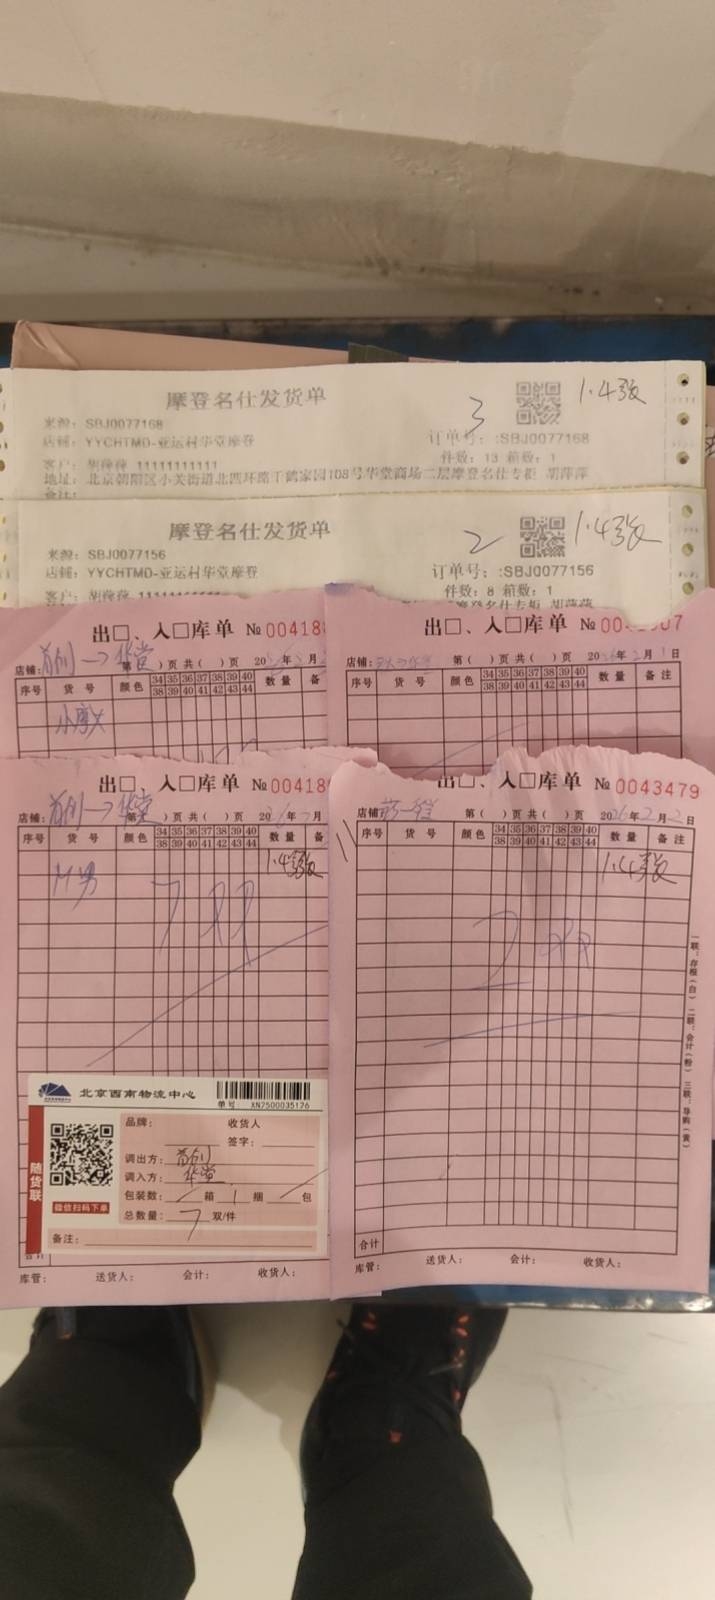 摩登名仕发货单
3
1.4张
来源: SBJ0077168
店铺: YYCHTMD-亚运村华堂摩登
订单号: :SBJ0077168
件数: 13 箱数: 1
客户: 11111111111
地址: 北京朝阳区小关街道北四环路丁鹤家园108号华堂商场二层摩登名仕专柜 胡萍萍
备注:
摩登名仕发货单
2
1.4张
来源: SBJ0077156
店铺: YYCHTMD-亚运村华堂摩登
订单号: :SBJ0077156
件数: 8 箱数: 1
出□、入□库单 № 00418
店铺: 首创→华堂 第( )页 共( )页 20 年 月
序号 货号 颜色 34 35 36 37 38 39 40 数量 备
38 39 40 41 42 43 44
出□、入□库单 №
店铺: 第( )页 共( )页 2026年2月1日
序号 货号 颜色 34 35 36 37 38 39 40 数量 备注
38 39 40 41 42 43 44
出□、入□库单 № 00418
店铺: 首创→华堂 第( )页 共( )页 2026年 月
序号 货号 颜色 34 35 36 37 38 39 40 数量 备
38 39 40 41 42 43 44
1.4张
M男 7双
北京西南物流中心
单号 XN7500035176
随货联
微信扫码下单
品牌: 收货人
签字:
调出方: 首创
调入方: 华堂
包装数: 箱 1 捆 包
总数量: 7 双/件
备注:
库管: 送货人: 会计: 收货人:
出□、入□库单 № 0043479
店铺: 第( )页 共( )页 2026年2月2日
序号 货号 颜色 34 35 36 37 38 39 40 数量 备注
38 39 40 41 42 43 44
1.4张
2双
一联:存根(白) 二联:会计(粉) 三联:导购(黄)
合计
库管: 送货人: 会计: 收货人: